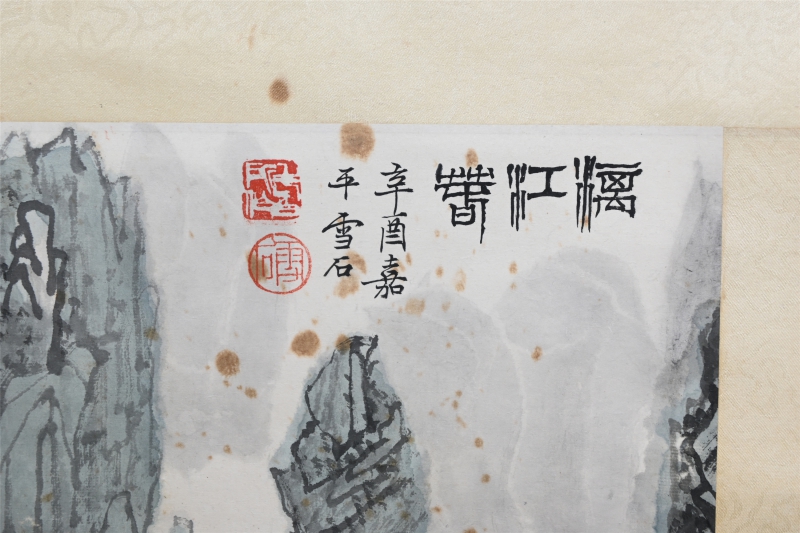 漓江春
辛酉嘉
平雪石